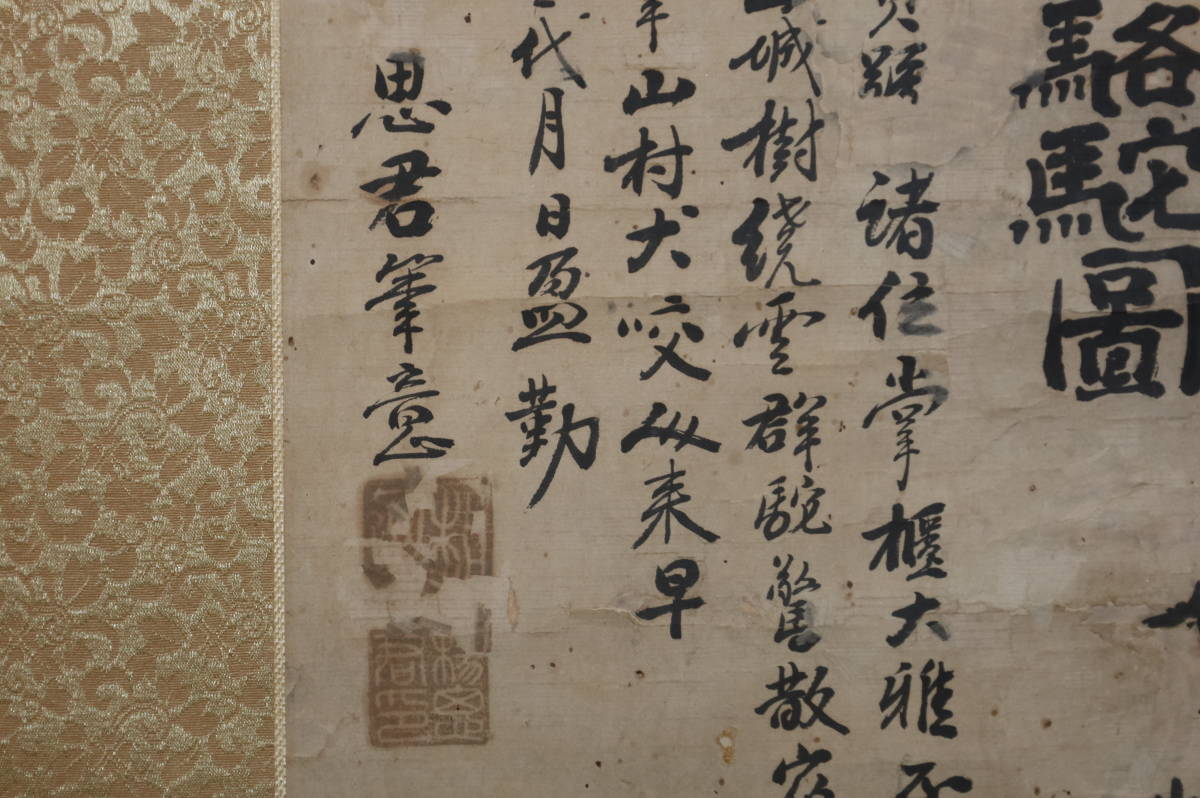 駱駝圖
諸位掌櫃大雅
城樹繞雲群駝驚散
山村犬咬從来早
代月日盈勤
思君筆意
楊思君印